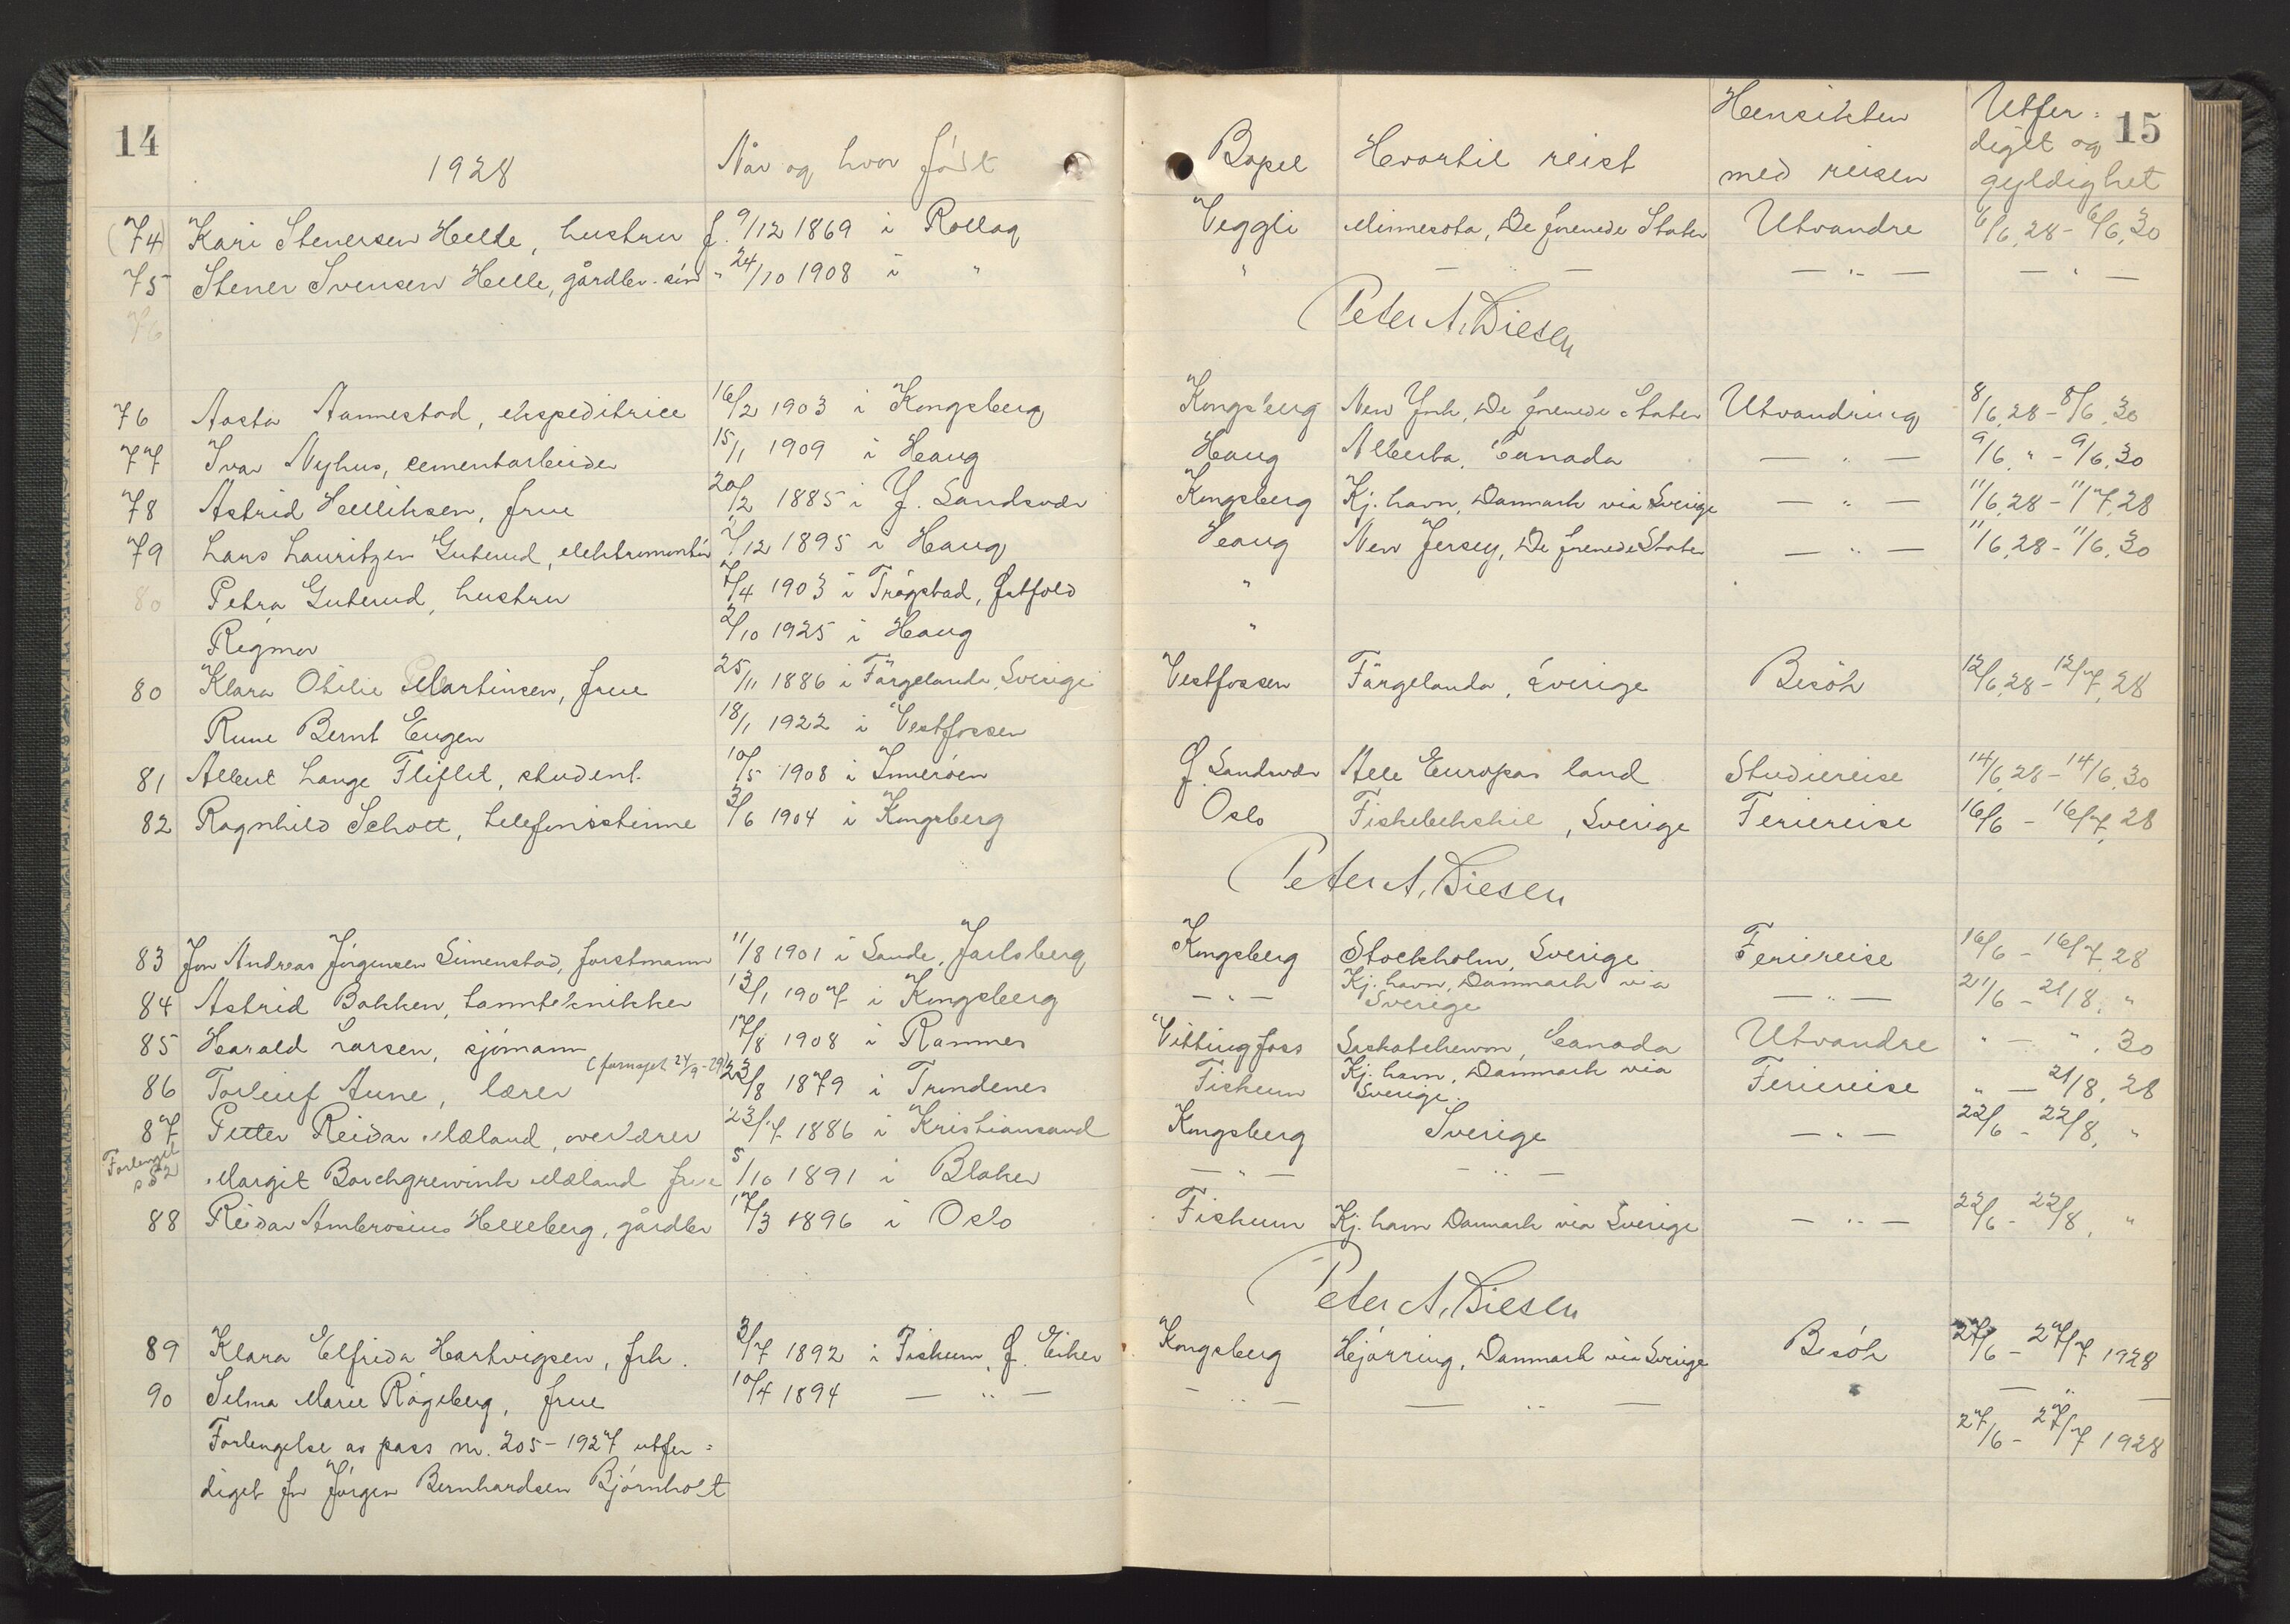 14
1928
Når og hvor født
Bopel
Hvortil reist
Hensikten
med reisen
Utfer=
digct og
gyldighet
15
(74) Kari Stenersen Helle, hustru f. 9/12 1869 i Rollag Veggli Minnesota, De forenede Stater Utvandre 6/6.28 - 6/6.30
75 Stener Svensen Helle, gårdbr. søn " 24/10 1908 i " " — " — — " — — " —
76
Peter A. Diesen
76 Aasta Aannestad, ekspeditrice 16/2 1903 i Kongsberg Kongsberg New York, De forenede Stater Utvandring 8/6.28 - 8/6.30
77 Ivar Nyhus, cementarbeider 15/1 1909 i Haug Haug Alberta, Canada — " — 9/6. " - 9/6.30
78 Astrid Hellihsen, frue 20/2 1885 i Y. Sandsvær Kongsberg Kj.havn, Danmark via Sverige — " — 11/6.28 - 11/7.28
79 Lars Lauritzen Guterud, elektromontør 7/12 1895 i Haug Haug New Jersey, De forenede Stater — " — 11/6.28 - 11/6.30
80 Petra Guterud, hustru 7/4 1903 i Trøgstad, Østfold "
Rigmor 2/10 1925 i Haug "
80 Klara Otilie Martinsen, frue 25/11 1886 i Färgelanda, Sverige Vestfossen Färgelanda, Sverige Besøk 12/6.28 - 12/7.28
Rune Bernt Eugen 18/1 1922 i Vestfossen
81 Albert Lange Fliflet, student 10/5 1908 i Inderøen Ø. Sandsvær Alle Europas land Studiereise 14/6.28 - 14/6.30
82 Ragnhild Schott, telefonistinne 3/6 1904 i Kongsberg Oslo Fiskebekskil, Sverige Feriereise 16/6 - 16/7.28
Peter A. Diesen
83 Jon Andreas Jørgensen Simenstad, forstmann 11/8 1901 i Sande, Jarlsberg Kongsberg Stockholm, Sverige Feriereise 16/6 - 16/7.28
84 Astrid Bakken, tannteknikker 13/1 1907 i Kongsberg — " — Kj.havn, Danmark via
Sverige — " — 21/6 - 21/8. "
85 Harald Larsen, sjømann 17/8 1908 i Ramnes Vittingfoss Saskatchewan, Canada Utvandre " — ". 30
(fornyet 24/9-29)
86 Torleif Aune, lærer 23/8 1879 i Trondenes Fiskum Kj.havn, Danmark via
Sverige. Feriereise " — 21/8.28
87 Petter Reidar Mæland, overlærer 23/7 1886 i Kristiansand Kongsberg Sverige — " — 22/6 - 22/8. "
Forlenget
s 52
Margit Borchgrevink Mæland frue 5/10 1891 i Blaker — " — — " —
88 Reidar Ambrosius Hexeberg, gårdbr 17/3 1896 i Oslo Fiskum Kj.havn Danmark via Sverige — " — 22/6 - 22/8. "
Peter A. Diesen
89 Klara Elfrida Hartvigsen, frk. 3/7 1892 i Fiskum, Ø. Eiker Kongsberg Hjørring, Danmark via Sverige Besøk 27/6 - 27/7 1928
90 Selma Marie Rågeberg, frue 10/4 1894 — " — — " — — " — " — " —
Forlengelse av pass nr. 205-1927 utfer= 27/6 - 27/7 1928
diget for Jørgen Bernhardsen Bjørnholt